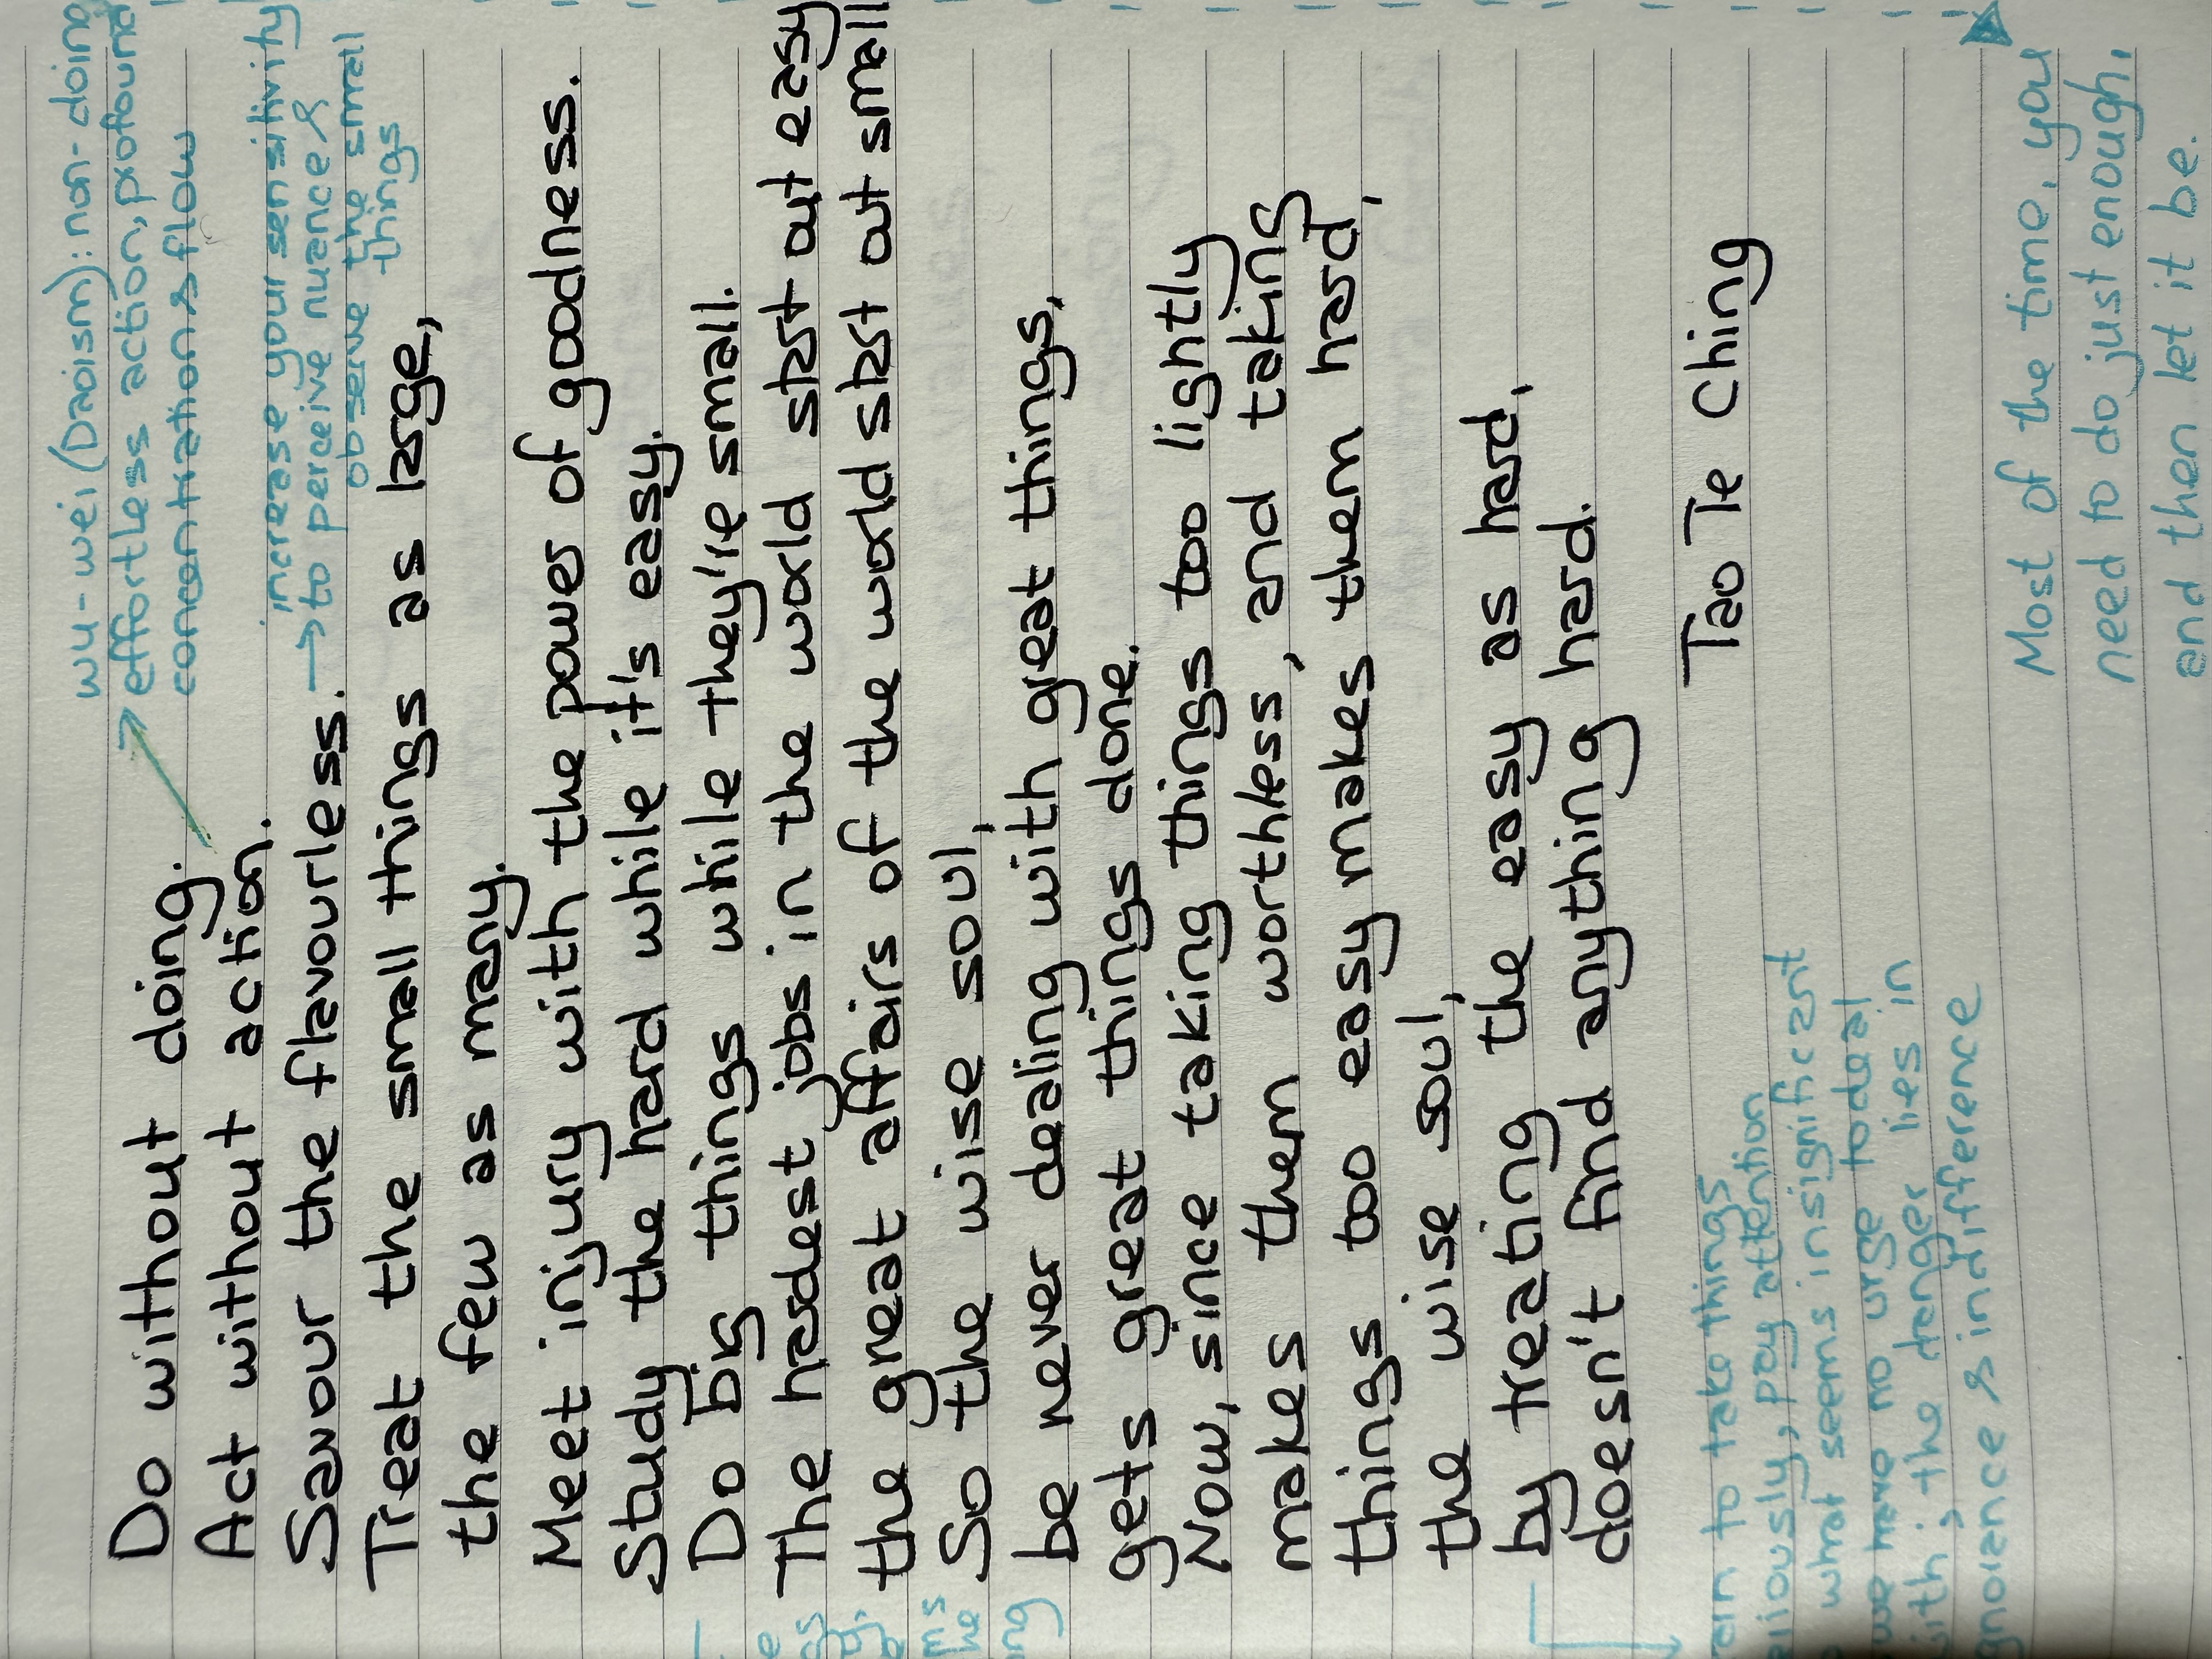 wu-wei (Daoism): non-doing
effortless action, profound
concentration & flow
Do without doing.
Act without action.
increase your sensitivity
→ to perceive nuance &
observe the small
things
Savour the flavourless.
Treat the small things as large,
the few as many.
Meet injury with the power of goodness.
Study the hard while it's easy.
Do big things while they're small.
The hardest jobs in the world start out easy
the great affairs of the world start out small
So the wise soul,
be never dealing with great things,
gets great things done.
Now, since taking things too lightly
makes them worthless, and taking
things too easy makes them hard,
the wise soul,
by treating the easy as hard,
doesn't find anything hard.
Tao Te Ching
to take things
pay attention
what seems insignificant
we have no urge to deal
with; the danger lies in
& indifference
Most of the time, you
need to do just enough,
and then let it be.